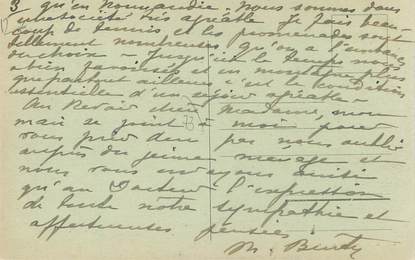 3 qu'en Normandie. Nous sommes dans
une société très agréable. Je fais beau-
coup de tennis et les promenades sont
tellement nombreuses qu'on a l'embarras
du choix. Jusqu'ici le temps nous
a bien favorisés et en montagne plus
que partout ailleurs c'est la condition
essentielle d'un séjour agréable.
Au Revoir chère Madame, mon
mari se joint à moi pour
73
vous prier de ne pas nous oublier
auprès du jeune ménage et
nous vous envoyons ainsi
qu'au Docteur l'expression
de toute notre sympathie et
affectueuses pensées.
M.